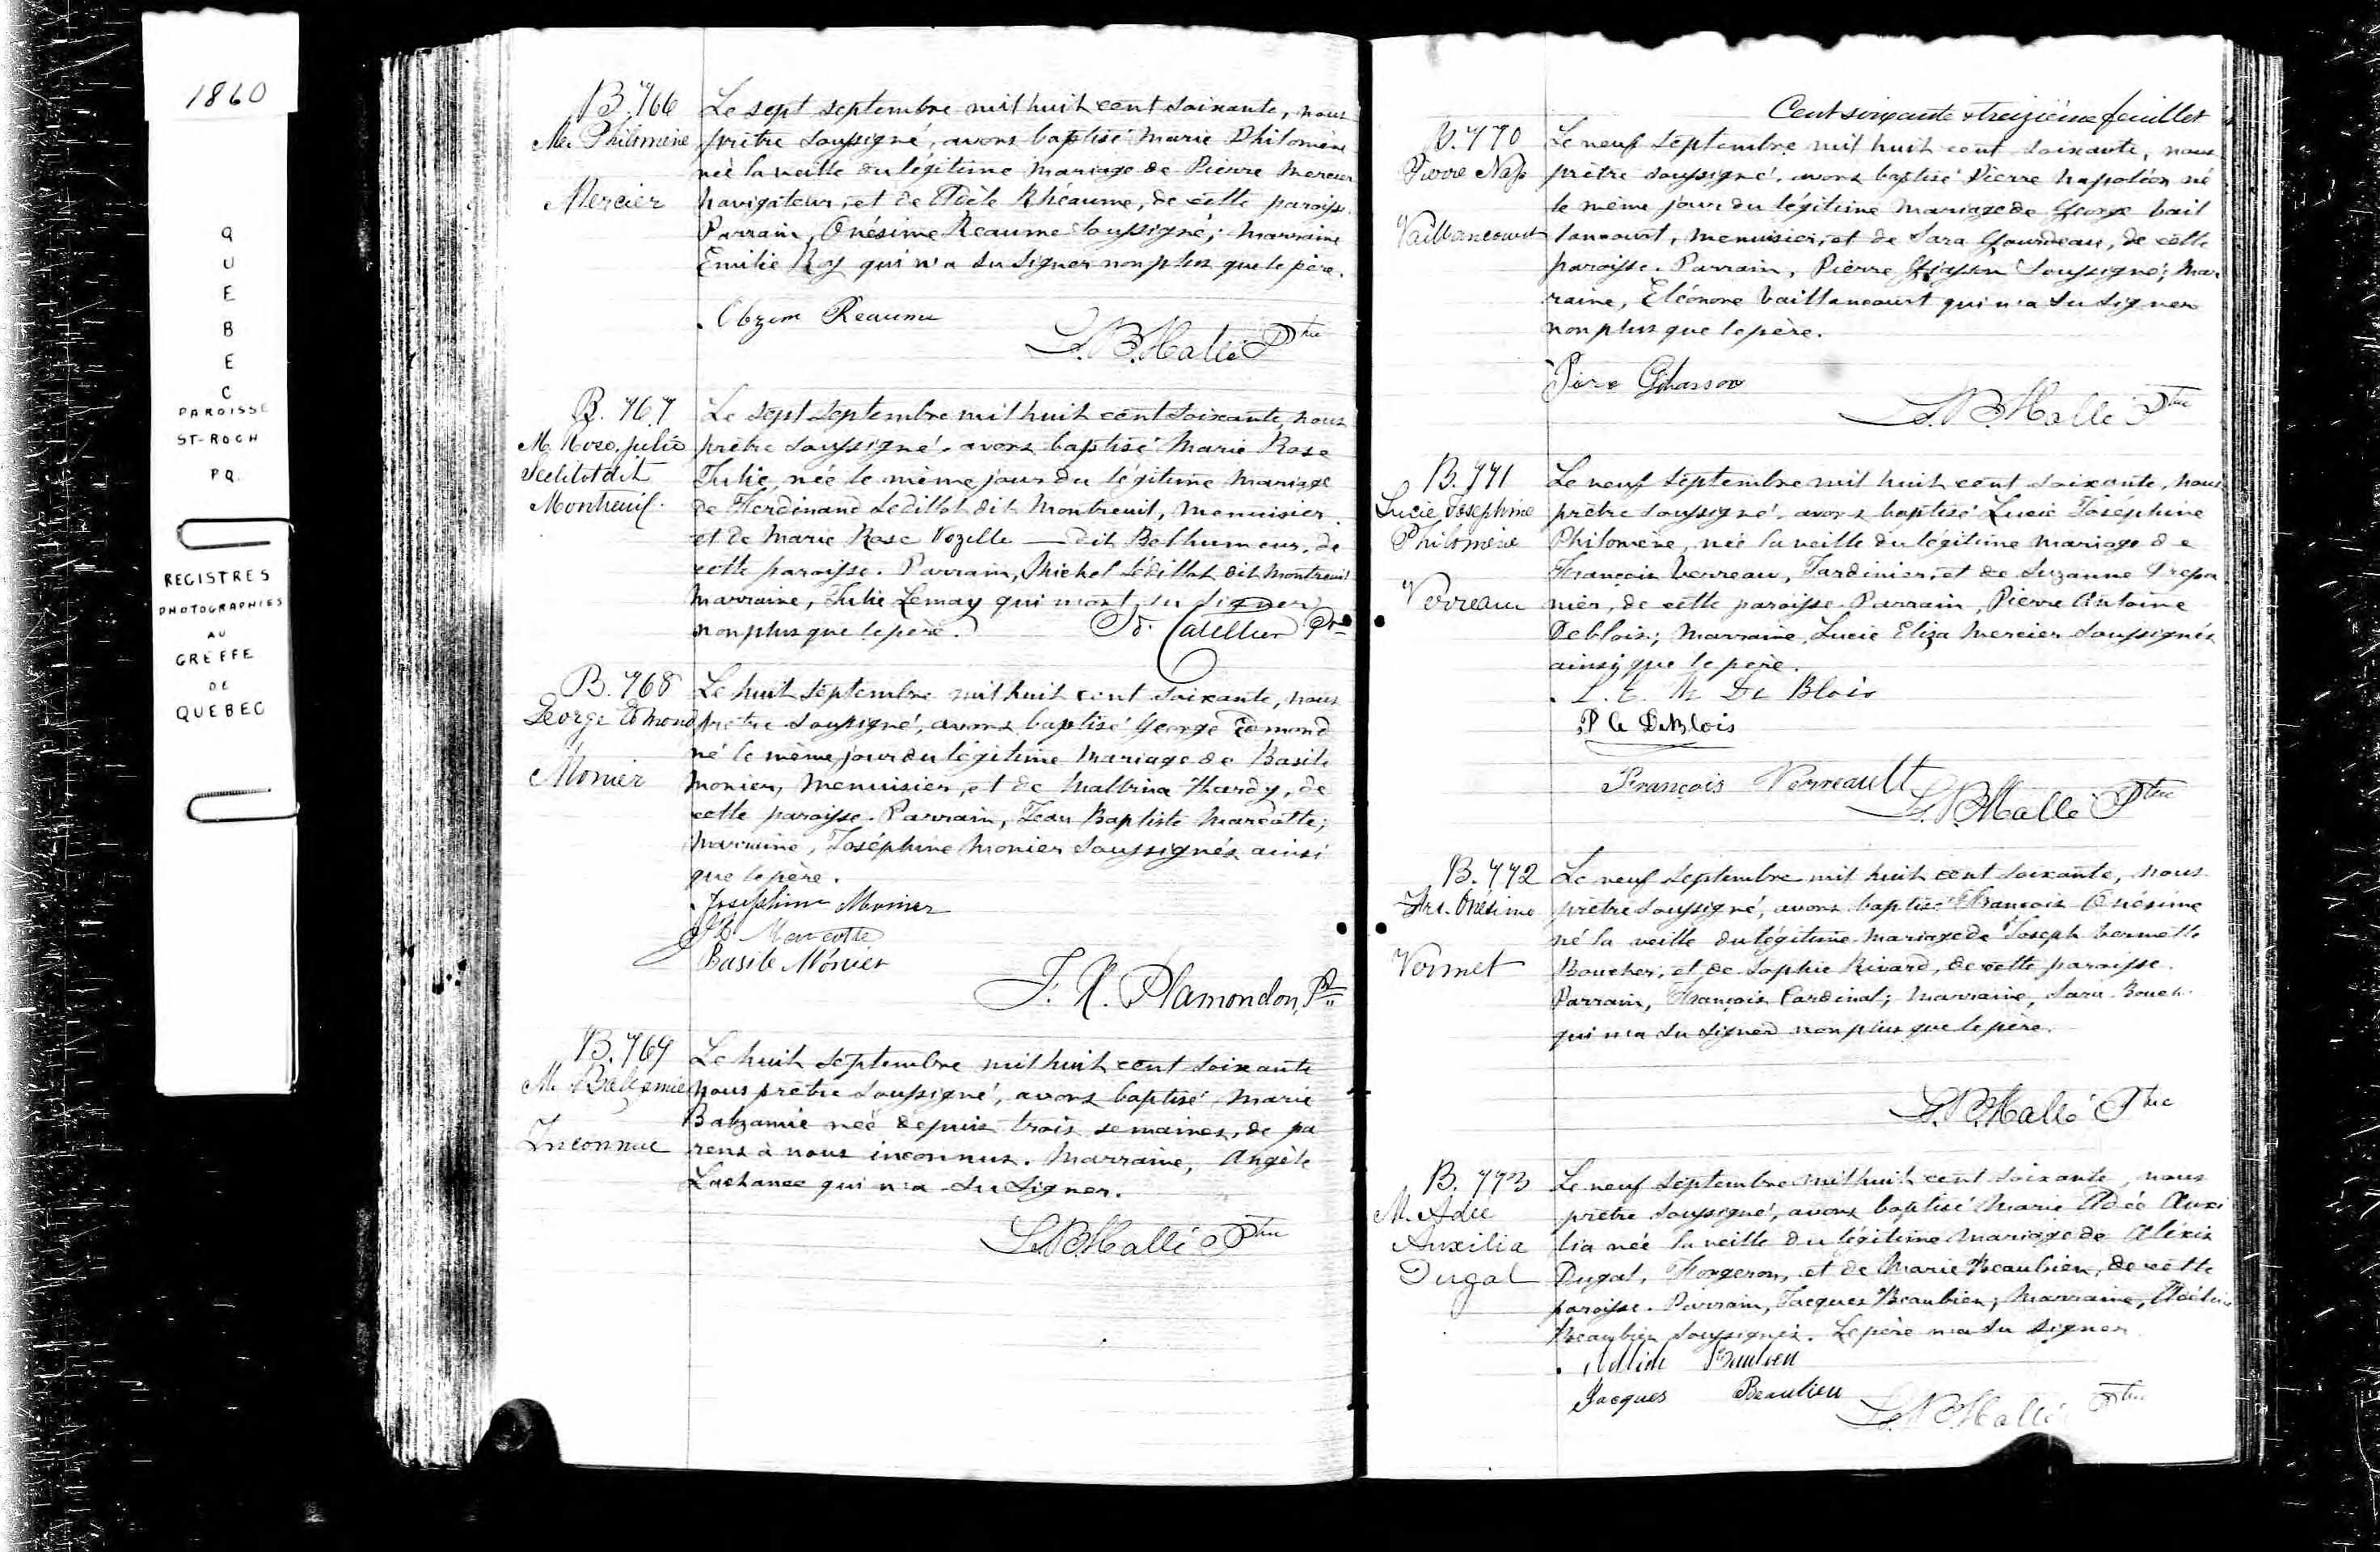 1860
QUEBEC
PAROISSE
ST-ROCH
PQ.
REGISTRES
PHOTOGRAPHIES
AU
GREFFE
DE
QUEBEC
B. 766
Me. Philomène
Mercier
Le sept septembre mil huit cent soixante, nous
prêtre soussigné, avons baptisé Marie Philomène
née la veille du légitime mariage de Pierre Mercier
navigateur, et de Adèle Rhéaume, de cette paroisse.
Parrain, Onésime Reaume soussigné; marraine
Emilie Roy qui n'a su signer non plus que le père.
Reaume
L.B. Hallé Ptre
B. 767
M. Rose. Julie
Sedilot dit
Montreuil.
Le sept septembre mil huit cent soixante, nous
prêtre soussigné, avons baptisé Marie Rose
Julie, née le même jour du légitime mariage
de Ferdinand Sedillot dit Montreuil, menuisier.
et de Marie Rose Vozelle — dit Belhumeur, de
cette paroisse. Parrain, Michel Sédillot dit Montreuil
marraine, Julie Lemay qui n'ont su signer
non plus que le père.
Catellier Ptre
B. 768
George Edmond
Monier
Le huit septembre mil huit cent soixante, nous
prêtre soussigné, avons baptisé George Edmond
né le même jour du légitime mariage de Basile
Monier, menuisier, et de Malvina Hardy, de
cette paroisse. Parrain, Jean Baptiste Marcotte;
marraine, Joséphine Monier soussignés ainsi
que le père.
Josephine Monier
J B Marcotte
Basile Monier
Plamondon, Ptre
B. 769
M. Balzamie
Inconnue
Le huit septembre mil huit cent soixante
nous prêtre soussigné, avons baptisé Marie
Balzamie née depuis trois semaines, de pa
rens à nous inconnus. Marraine, Angèle
Lachance qui n'a su signer.
L.B. Hallé Ptre
Cent soixante & treizième feuillet
B. 770
Pierre Nap
Vaillancourt
Le neuf septembre mil huit cent soixante, nous
prêtre soussigné, avons baptisé Pierre Napoléon né
le même jour du légitime mariage de George Vail
lancourt, menuisier, et de Sara Gourdeau, de cette
paroisse. Parrain, Pierre soussigné; mar
raine, Eléonore Vaillancourt qui n'a su signer
non plus que le père.
L.B. Hallé Ptre
B. 771
Lucie Joséphine
Philomène
Verreau
Le neuf septembre mil huit cent soixante, nous
prêtre soussigné, avons baptisé Lucie Joséphine
Philomène, née la veille du légitime mariage de
François Verreau, Jardinier, et de Suzanne Trepa
nier, de cette paroisse. Parrain, Pierre Antoine
Deblois; marraine, Lucie Eliza Mercier soussignés
ainsi que le père.
L. E. M De Blois
P A DeBlois
François Verreault
L.B. Hallé Ptre
B. 772
Frs. Onésime
Vermet
Le neuf septembre mil huit cent soixante, nous
prêtre soussigné, avons baptisé François Onésime
né la veille du légitime mariage de Joseph Vermette
Boucher, et de Sophie Rivard, de cette paroisse.
Parrain, François Cardinal; marraine, Sara Bouch
qui n'a su signer non plus que le père.
L.B. Hallé Ptre
B. 773
M. Adée
Auxilia
Dugal
Le neuf septembre mil huit cent soixante, nous
prêtre soussigné, avons baptisé Marie Adée Auxi
lia née la veille du légitime mariage de Aléxis
Dugal, Forgeron, et de Marie Beaubien, de cette
paroisse. Parrain, Jacques Beaubien; Marraine,
Beaubien soussignés. Le père n'a su signer
Beaulieu
Jacques Beaulieu
L.B. Hallé Ptre